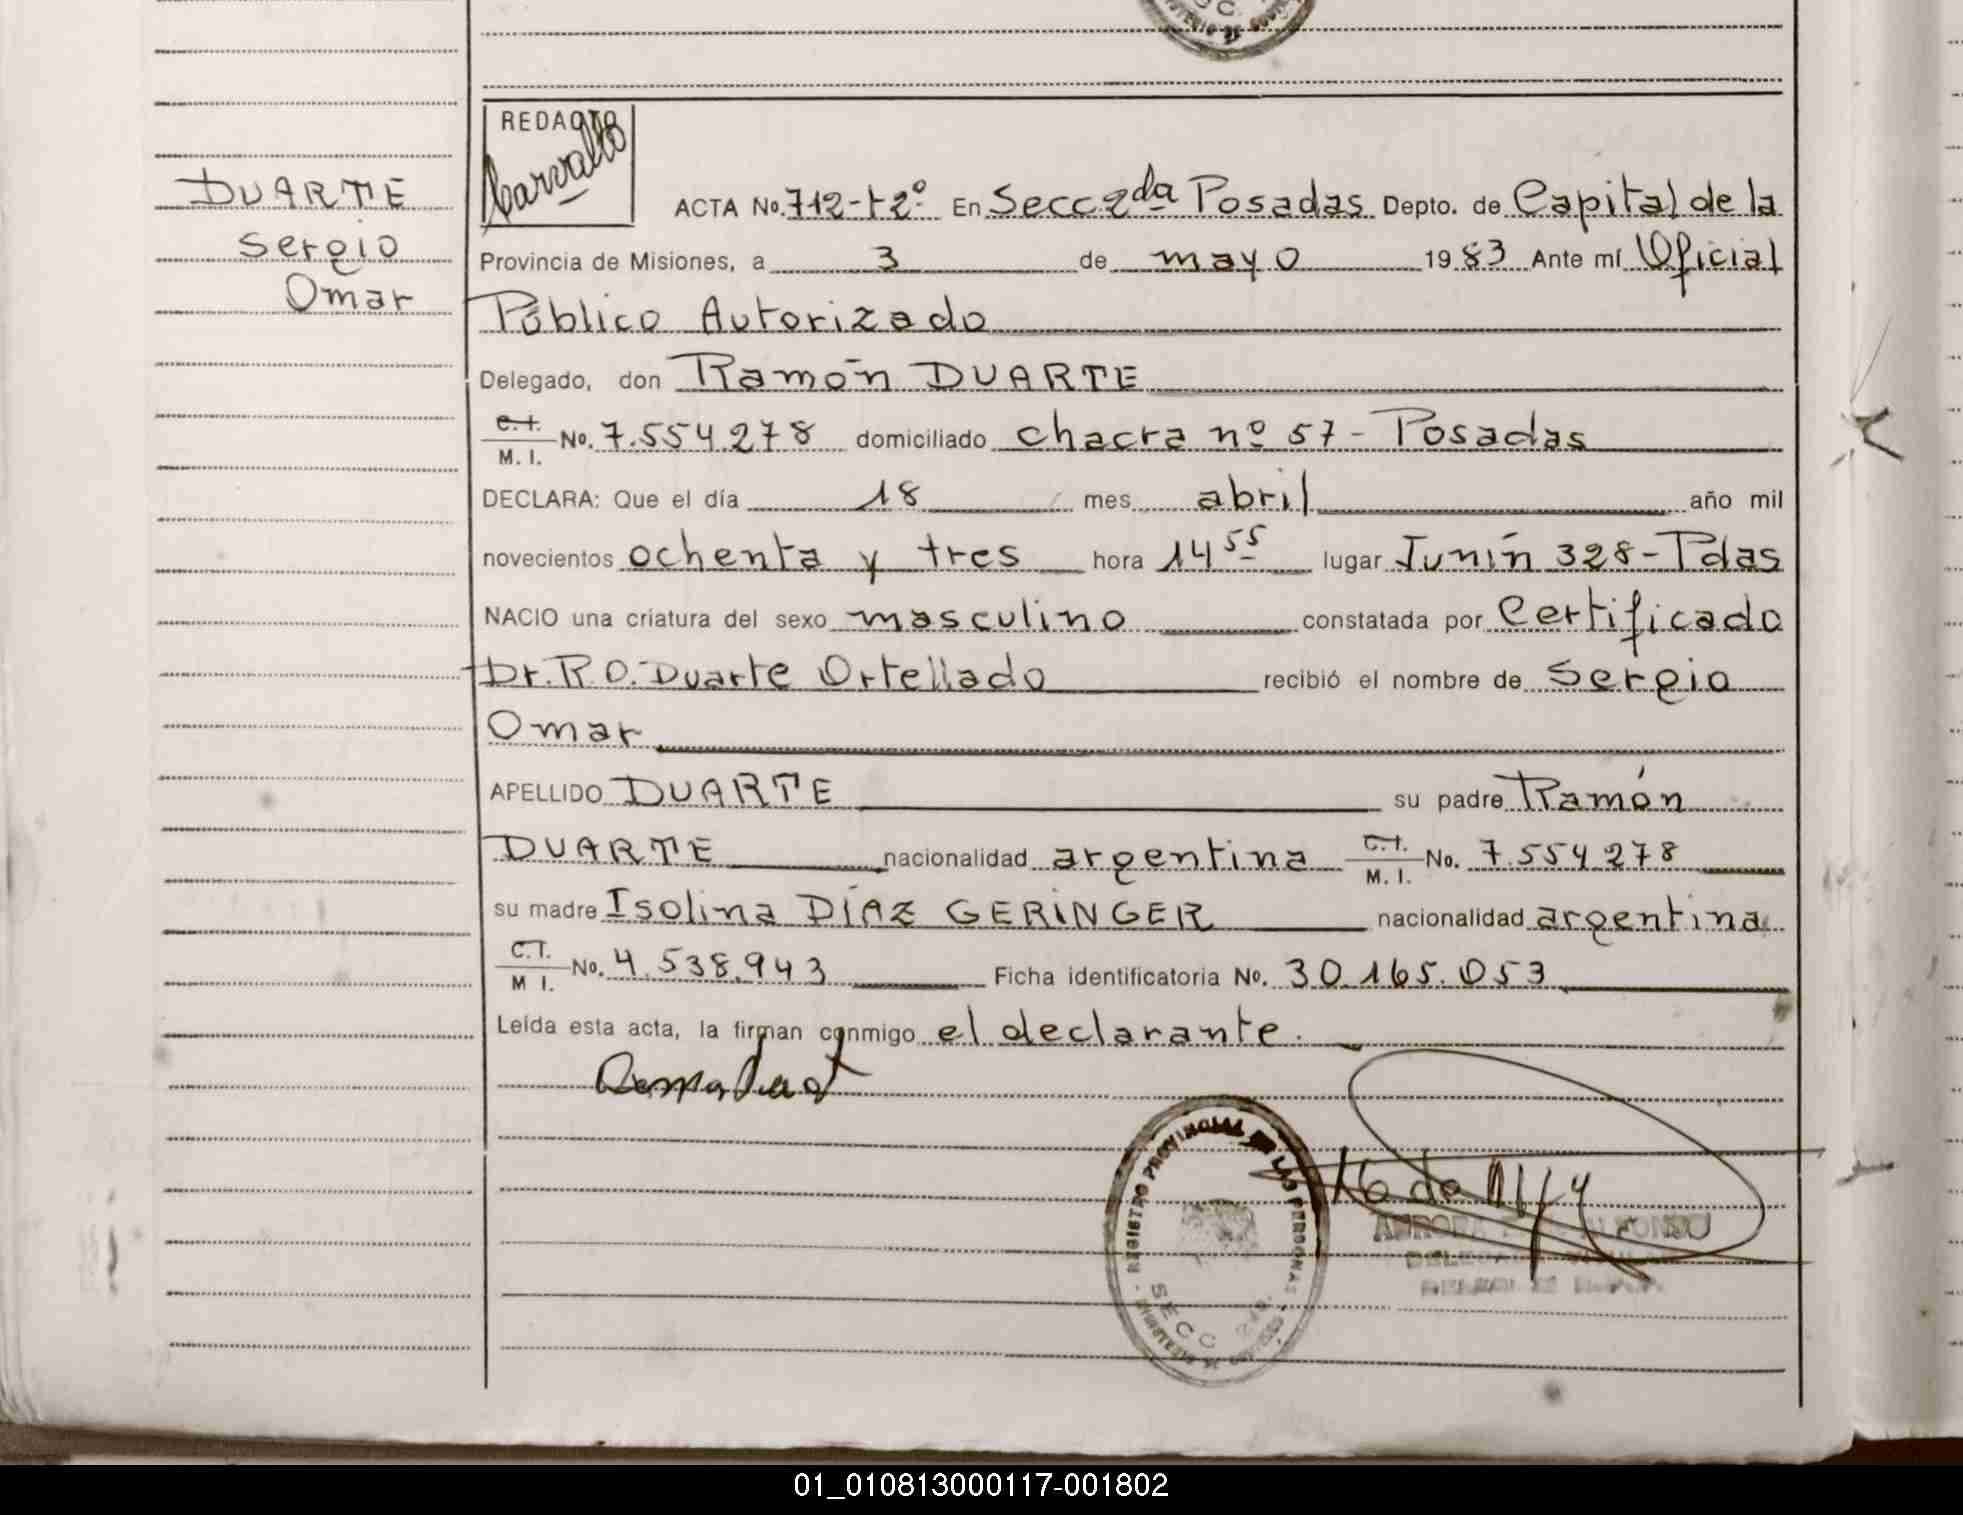 DUARTE
Sergio
Omar
REDACTO
Carvallo
ACTA No. 712-t2º En Secc 2da Posadas Depto. de Capital de la
Provincia de Misiones, a 3 de mayo 1983 Ante mí Oficial
Público Autorizado
Delegado, don Ramón DUARTE
C.I. M. I. No. 7.554.278 domiciliado chacra nº 57 - Posadas
DECLARA: Que el día 18 mes abril año mil
novecientos ochenta y tres hora 14 55 lugar Junín 328 - Pdas
NACIO una criatura del sexo masculino constatada por Certificado
Dr. R. O. Duarte Ortellado recibió el nombre de Sergio
Omar
APELLIDO DUARTE su padre Ramón
DUARTE nacionalidad argentina C.I. M. I. No. 7.554.278
su madre Isolina DÍAZ GERINGER nacionalidad argentina
C.I. M I. No. 4.538.943 Ficha identificatoria No. 30.165.053
Leída esta acta, la firman conmigo el declarante.
REGISTRO PROVINCIAL DE LAS PERSONAS
SECC 2da.
AURORA
01_010813000117-001802